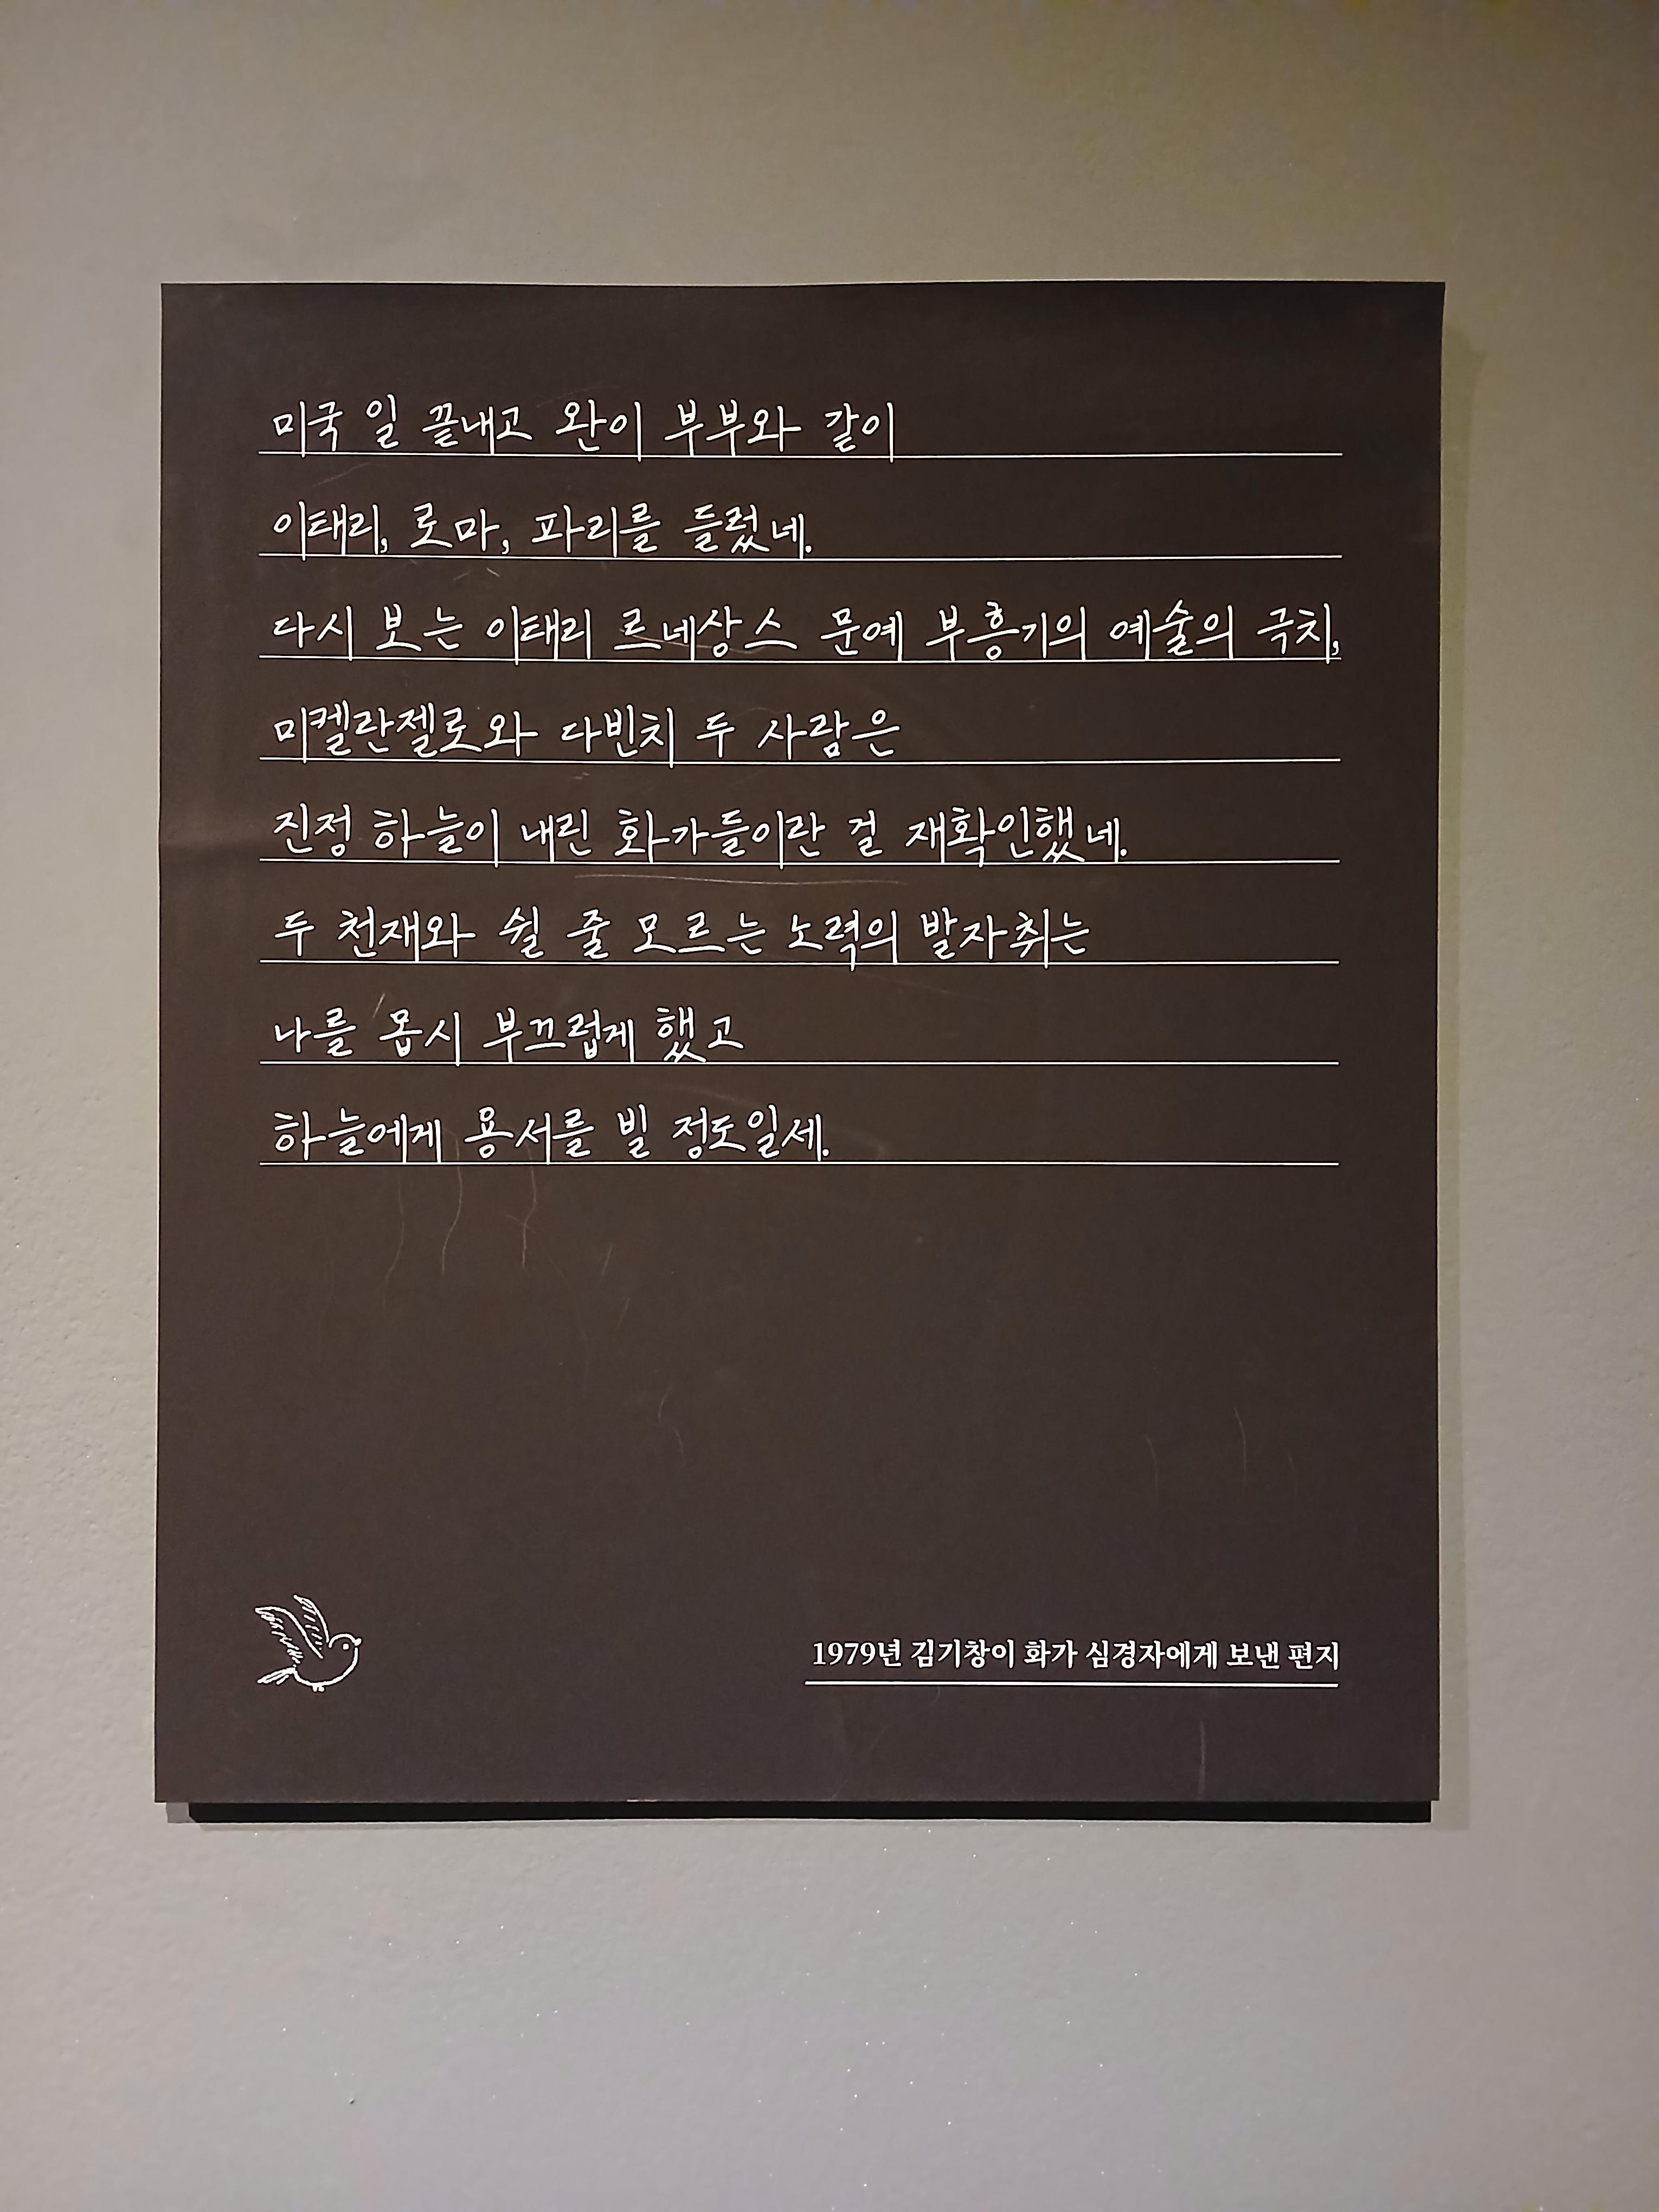 미국 일 끝내고 완이 부부와 같이
이태리, 로마, 파리를 들렀네.
다시 보는 이태리 르네상스 문예 부흥기의 예술의 극치,
미켈란젤로와 다빈치 두 사람은
진정 하늘이 내린 화가들이란 걸 재확인했네.
두 천재와 쉴 줄 모르는 노력의 발자취는
나를 몹시 부끄럽게 했고
하늘에게 용서를 빌 정도일세.
1979년 김기창이 화가 심경자에게 보낸 편지